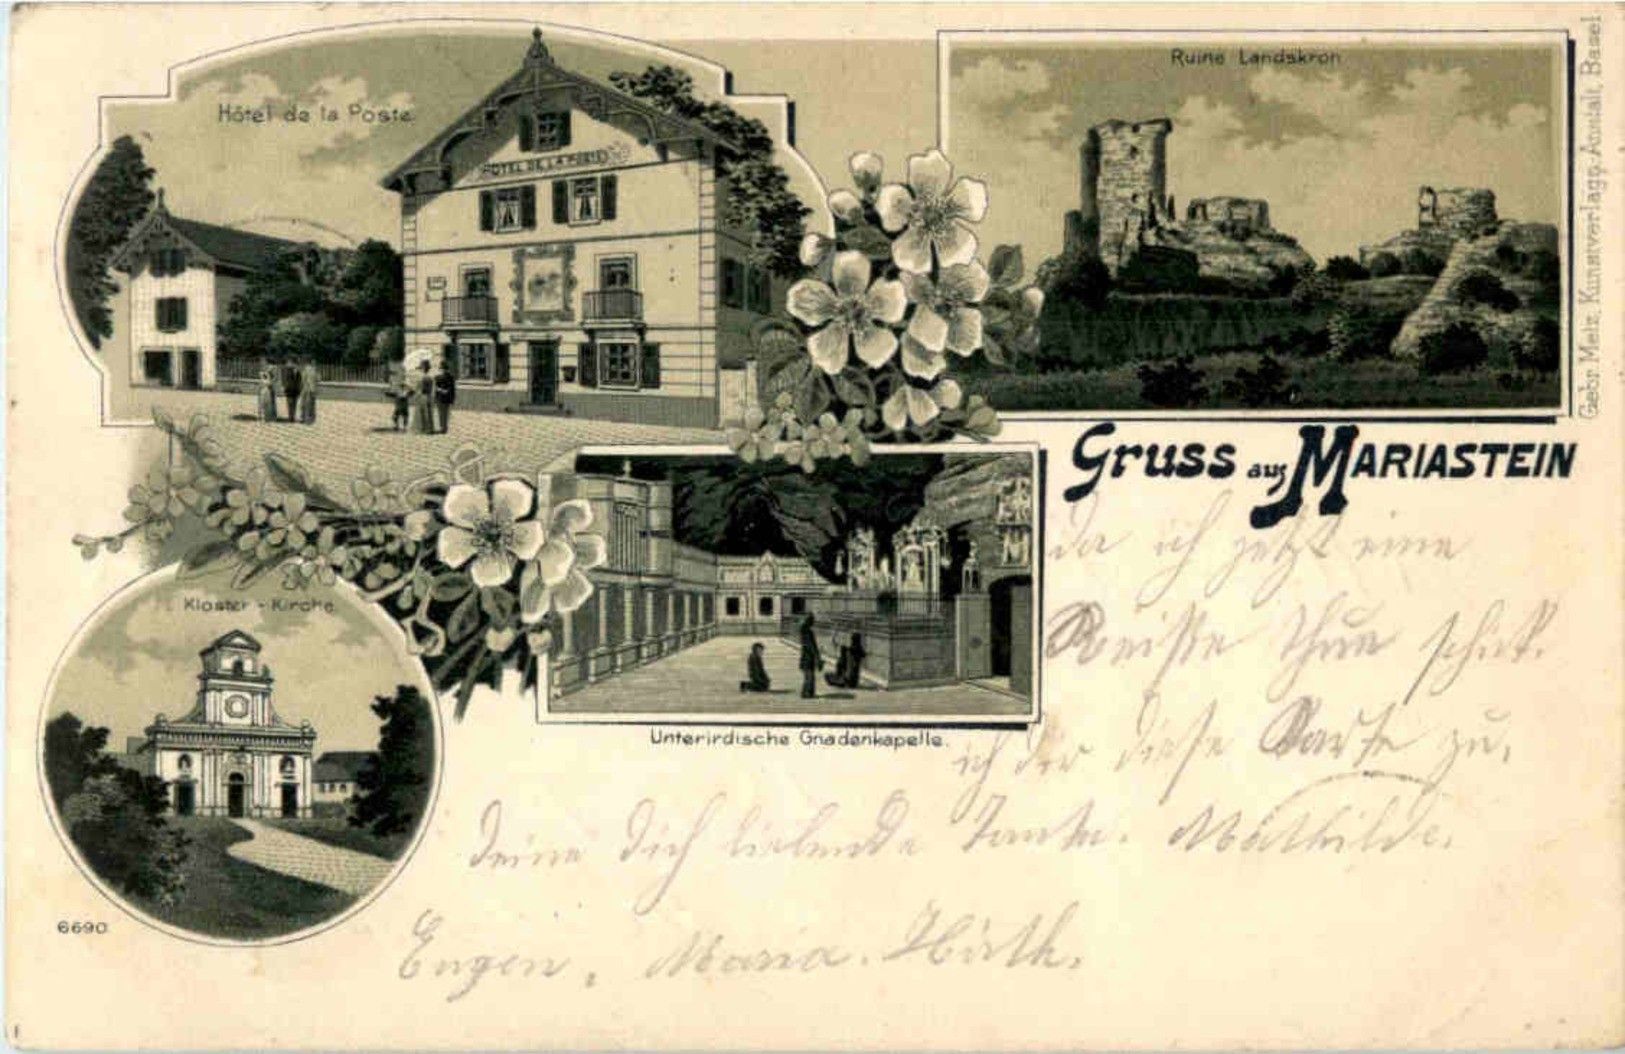 Hôtel de la Poste
HOTEL DE LA POSTE
Ruine Landskron
Gebr. Metz, Kunstverlags-Anstalt, Basel
Gruss aus MARIASTEIN
Kloster-Kirche.
Unterirdische Gnadenkapelle.
6690
da ich jetzt eine
Reise thun schick.
ich dir diese Karte zu.
deine dich liebende Tante. Mathilde.
Eugen, Maria. Hirth.